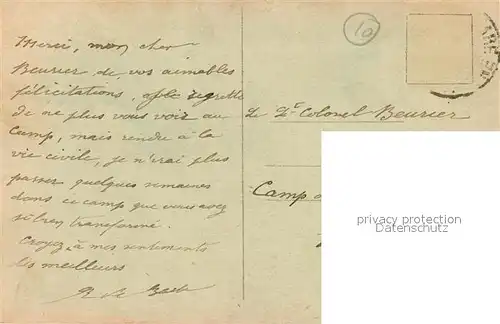 Merci, mon cher
Beurier de vos aimables
félicitations. Je regrette
de ne plus vous voir au
Camp, mais rendu à la
vie civile, je n'irai plus
passer quelques semaines
dans ce camp que vous avez
si bien transformé.
Croyez à mes sentiments
les meilleurs
10
Le Lt Colonel Beurier
Camp
privacy protection
Datenschutz